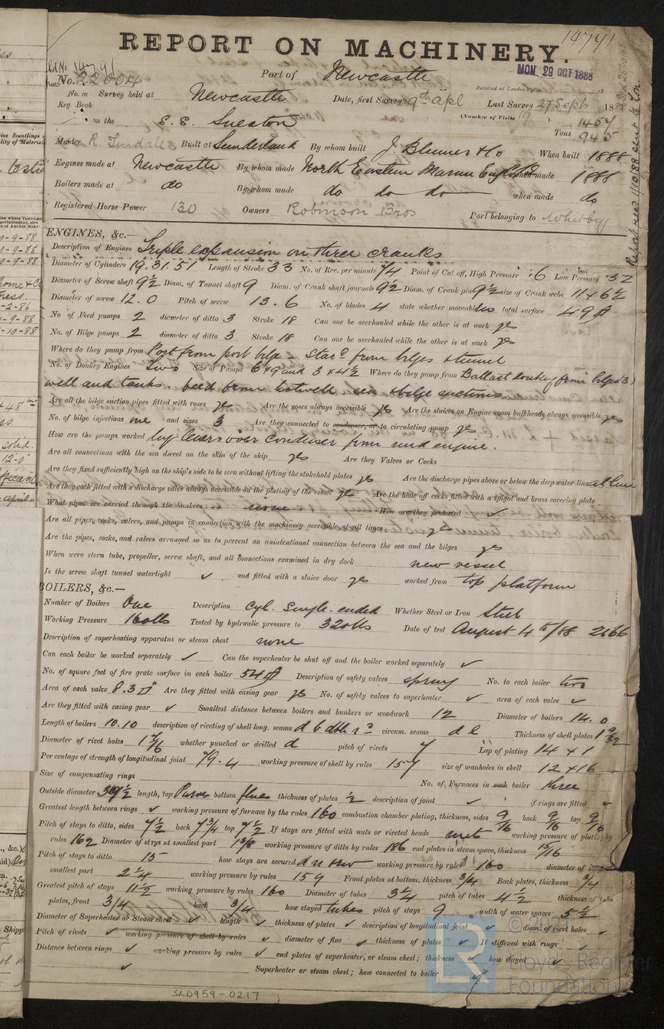 14791
REPORT ON MACHINERY.
No. 22004
Port of Newcastle
MON 29 OCT 1888
No. in Survey held at Newcastle Date, first Survey 9th Apl Last Survey 27 Sept 18
Reg. Book
(Number of Visits 19)
on the S.S. Sneaton Tons 1457 945
Master R. Tindale Built at Sunderland By whom built J. Blumer & Co When built 1888
Engines made at Newcastle By whom made North Eastern Marine Engine when made 1888
Boilers made at do By whom made do do do when made do
Registered Horse Power 130 Owners Robinson Bros Port belonging to Whitby
ENGINES, &c.—
Description of Engines Triple expansion on three cranks
Diameter of Cylinders 19.31.51 Length of Stroke 33 No. of Rev. per minute 74 Point of Cut off, High Pressure .6 Low Pressure .52
Diameter of Screw shaft 9½ Diam. of Tunnel shaft 9 Diam. of Crank shaft journals 9½ Diam. of Crank pin 9½ size of Crank webs 11 x 6½
Diameter of screw 12.0 Pitch of screw 13.6 No. of blades 4 state whether moveable no total surface 49 ft
No. of Feed pumps 2 diameter of ditto 3 Stroke 18 Can one be overhauled while the other is at work yes
No. of Bilge pumps 2 diameter of ditto 3 Stroke 18 Can one be overhauled while the other is at work yes
Where do they pump from Port from port bilge Starb from bilges & tunnel
No. of Donkey Engines two Size of Pumps 6 x 9 and 3 x 4½ Where do they pump from Ballast donkey from bilges (3)
well and tanks. feed from hotwell sea & bilge suctions
Are all the bilge suction pipes fitted with roses yes Are the roses always accessible yes Are the sluices on Engine room bulkheads always accessible yes
No. of bilge injections one and sizes 3 Are they connected to condenser, or to circulating pump yes
How are the pumps worked by levers over condenser from mid engine.
Are all connections with the sea direct on the skin of the ship yes Are they Valves or Cocks
Are they fixed sufficiently high on the ship's side to be seen without lifting the stokehold plates yes Are the discharge pipes above or below the deep water line at line
Are they each fitted with a discharge valve always accessible on the plating of the vessel yes Are the blow off cocks fitted with a spigot and brass covering plate
What pipes are carried through the bunkers none How are they protected ✓
Are all pipes, cocks, valves, and pumps in connection with the machinery accessible at all times yes
Are the pipes, cocks, and valves arranged so as to prevent an unintentional connection between the sea and the bilges yes
When were stern tube, propeller, screw shaft, and all connections examined in dry dock new vessel
Is the screw shaft tunnel watertight ✓ and fitted with a sluice door yes worked from top platform
BOILERS, &c.—
Number of Boilers One Description Cyl. Single-ended Whether Steel or Iron Steel
Working Pressure 160lbs Tested by hydraulic pressure to 320lbs Date of test August 4th/88 2666
Description of superheating apparatus or steam chest none
Can each boiler be worked separately ✓ Can the superheater be shut off and the boiler worked separately ✓
No. of square feet of fire grate surface in each boiler 54 ft Description of safety valves spring No. to each boiler two
Area of each valve 8.3 □" Are they fitted with easing gear yes No. of safety valves to superheater ✓ area of each valve ✓
Are they fitted with easing gear ✓ Smallest distance between boilers and bunkers or woodwork 12 Diameter of boilers 14.0
Length of boilers 10.10 description of riveting of shell long. seams circum. seams d l Thickness of shell plates 1 9/32
Diameter of rivet holes 1 7/16 whether punched or drilled d pitch of rivets 7 Lap of plating 14 x 1
Per centage of strength of longitudinal joint 79.4 working pressure of shell by rules 157 size of manholes in shell 12 x 16
Size of compensating rings No. of Furnaces in each boiler three
Outside diameter 39½ length, top Purves bottom flues thickness of plates ½ description of joint ✓ if rings are fitted ✓
Greatest length between rings ✓ working pressure of furnace by the rules 160 combustion chamber plating, thickness, sides 9/16 back 9/16 top 9/16
Pitch of stays to ditto, sides 7½ back 7¾ top 7½ If stays are fitted with nuts or riveted heads nuts working pressure of plating by
rules 162 Diameter of stays at smallest part 1 3/8 working pressure of ditto by rules 186 end plates in steam space, thickness 15/16
Pitch of stays to ditto 15 how stays are secured working pressure by rules 160 diameter of stays at
smallest part 2¼ working pressure by rules 159 Front plates at bottom, thickness ¾ Back plates, thickness ¾
Greatest pitch of stays 11½ working pressure by rules 160 Diameter of tubes 3¼ pitch of tubes 4½ thickness of tube
plates, front ¾ back ¾ how stayed tubes pitch of stays 9 width of water spaces 5½
Diameter of Superheater or Steam chest ✓ length ✓ thickness of plates ✓ description of longitudinal joint ✓ diam. of rivet holes ✓
Pitch of rivets ✓ working pressure of shell by rules ✓ diameter of flue ✓ thickness of plates ✓ If stiffened with rings ✓
Distance between rings ✓ working pressure by rules ✓ end plates of superheater, or steam chest; thickness ✓ how stayed ✓
✓ Superheater or steam chest; how connected to boiler ✓
SLD959-0217
© Lloyd's Register
Foundation